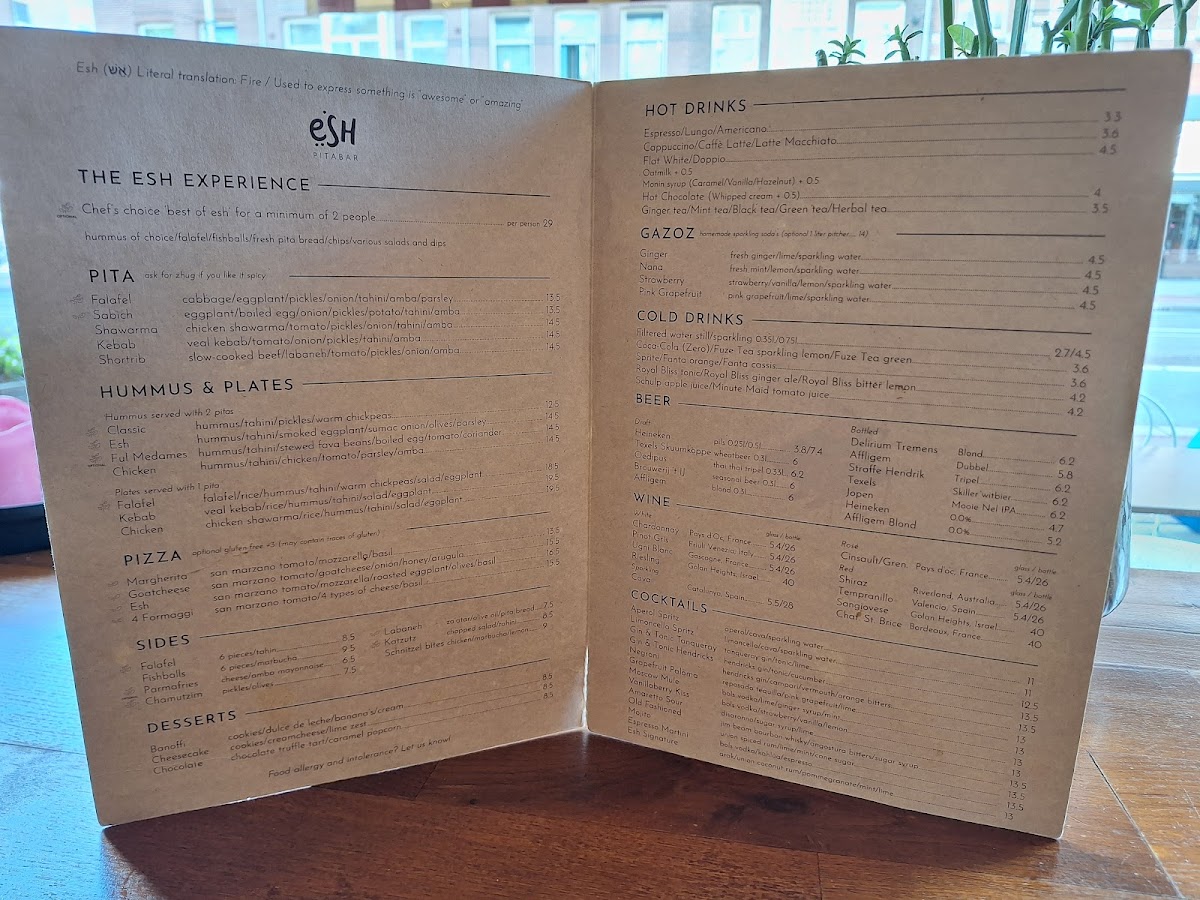 Esh (אש) Literal translation: Fire / Used to express something is "awesome" or "amazing"
eSH
PITABAR
THE ESH EXPERIENCE
Chef's choice 'best of esh' for a minimum of 2 people per person 29
hummus of choice/falafel/fishballs/fresh pita bread/chips/various salads and dips
PITA ask for zhug if you like it spicy
Falafel cabbage/eggplant/pickles/onion/tahini/amba/parsley 13.5
Sabich eggplant/boiled egg/onion/pickles/potato/tahini/amba 13.5
Shawarma chicken shawarma/tomato/pickles/onion/tahini/amba 14.5
Kebab veal kebab/tomato/pickles/onion/tahini/amba 14.5
Shortrib slow-cooked beef/labaneh/tomato/pickles/onion/amba 14.5
HUMMUS & PLATES
Hummus served with 2 pitas
Classic hummus/tahini/pickles/warm chickpeas 12.5
Esh hummus/tahini/smoked eggplant/sumac onion/olives/parsley 14.5
Ful Medames hummus/tahini/stewed fava beans/boiled egg/tomato/coriander 14.5
Chicken hummus/tahini/chicken/tomato/parsley/amba 14.5
Plates served with 1 pita
Falafel falafel/rice/hummus/tahini/warm chickpeas/salad/eggplant 18.5
Kebab veal kebab/rice/hummus/tahini/salad/eggplant 19.5
Chicken chicken shawarma/rice/hummus/tahini/salad/eggplant 19.5
PIZZA optional gluten free +3 (may contain traces of gluten)
Margherita san marzano tomato/mozzarella/basil 13.5
Goatcheese san marzano tomato/goatcheese/onion/honey/arugula 15.5
Esh san marzano tomato/mozzarella/roasted eggplant/olives/basil 16.5
4 Formaggi san marzano tomato/4 types of cheese/basil 15.5
SIDES
Falafel 6 pieces/tahin 8.5
Fishballs 6 pieces/matbucha 9.5
Parmafries cheese/amba mayonnaise 6.5
Chamutzim pickles/olives 7.5
Labaneh za'atar/olive oil/pita bread 7.5
Katzutz chopped salad/tahini 8.5
Schnitzel bites chicken/matbucha/lemon 9
DESSERTS
Banoffi cookies/dulce de leche/banana's/cream 8.5
Cheesecake cookies/creamcheese/lime zest 8.5
Chocolate chocolate truffle tart/caramel popcorn 8.5
Food allergy and intolerance? Let us know!
HOT DRINKS
Espresso/Lungo/Americano 3.3
Cappuccino/Caffè Latte/Latte Macchiato 3.6
Flat White/Doppio 4.5
Oatmilk + 0.5
Monin syrup (Caramel/Vanilla/Hazelnut) + 0.5
Hot Chocolate (Whipped cream + 0.5) 4
Ginger tea/Mint tea/Black tea/Green tea/Herbal tea 3.5
GAZOZ homemade sparkling soda's (optional 1 liter pitcher... 14)
Ginger fresh ginger/lime/sparkling water 4.5
Nana fresh mint/lemon/sparkling water 4.5
Strawberry strawberry/vanilla/lemon/sparkling water 4.5
Pink Grapefruit pink grapefruit/lime/sparkling water 4.5
COLD DRINKS
Filtered water still/sparkling 0.35l/0.75l 2.7/4.5
Coca-Cola (Zero)/Fuze Tea sparkling lemon/Fuze Tea green 3.6
Sprite/Fanta orange/Fanta cassis 3.6
Royal Bliss tonic/Royal Bliss ginger ale/Royal Bliss bitter lemon 4.2
Schulp apple juice/Minute Maid tomato juice 4.2
BEER
Draft
Heineken pils 0.25l/0.5l 3.8/7.4
Texels Skuumkoppe wheatbeer 0.3l 6
Oedipus thai thai tripel 0.33l 6.2
Brouwerij 't IJ seasonal beer 0.3l 6
Affligem blond 0.3l 6
Bottled
Delirium Tremens Blond 6.2
Affligem Dubbel 5.8
Straffe Hendrik Tripel 6.2
Texels Skiller witbier 6.2
Jopen Mooie Nel IPA 6.2
Heineken 0.0% 4.7
Affligem Blond 0.0% 5.2
WINE
White glass / bottle
Chardonnay Pays d'Oc, France 5.4/26
Pinot Gris Friuli Venezia, Italy 5.4/26
Ugni Blanc Gascogne, France 5.4/26
Riesling Golan Heights, Israel 40
Sparkling
Cava Catalunya, Spain 5.5/28
Rosé glass / bottle
Cinsault/Gren. Pays d'oc, France 5.4/26
Red glass / bottle
Shiraz Riverland, Australia 5.4/26
Tempranillo Valencia, Spain 5.4/26
Sangiovese Golan Heights, Israel 40
Chat St. Brice Bordeaux, France 40
COCKTAILS
Aperol Spritz aperol/cava/sparkling water 11
Limoncello Spritz limoncello/cava/sparkling water 11
Gin & Tonic Tanqueray tanqueray gin/tonic/lime 12.5
Gin & Tonic Hendricks hendricks gin/tonic/cucumber 13.5
Negroni hendricks gin/campari/vermouth/orange bitters 13.5
Grapefruit Paloma reposada tequila/pink grapefruit/lime 13
Moscow Mule bols vodka/lime/ginger syrup/mint 13
Vanillaberry Kiss bols vodka/strawberry/vanilla/lemon 13
Amaretto Sour
Old Fashioned jim beam bourbon whisky/angostura bitters/sugar syrup
Mojito union spiced rum/lime/mint/cane sugar 13.5
Espresso Martini bols vodka/kahlua/espresso 13.5
Esh Signature arak/union coconut rum/pommegranate/mint/lime 13